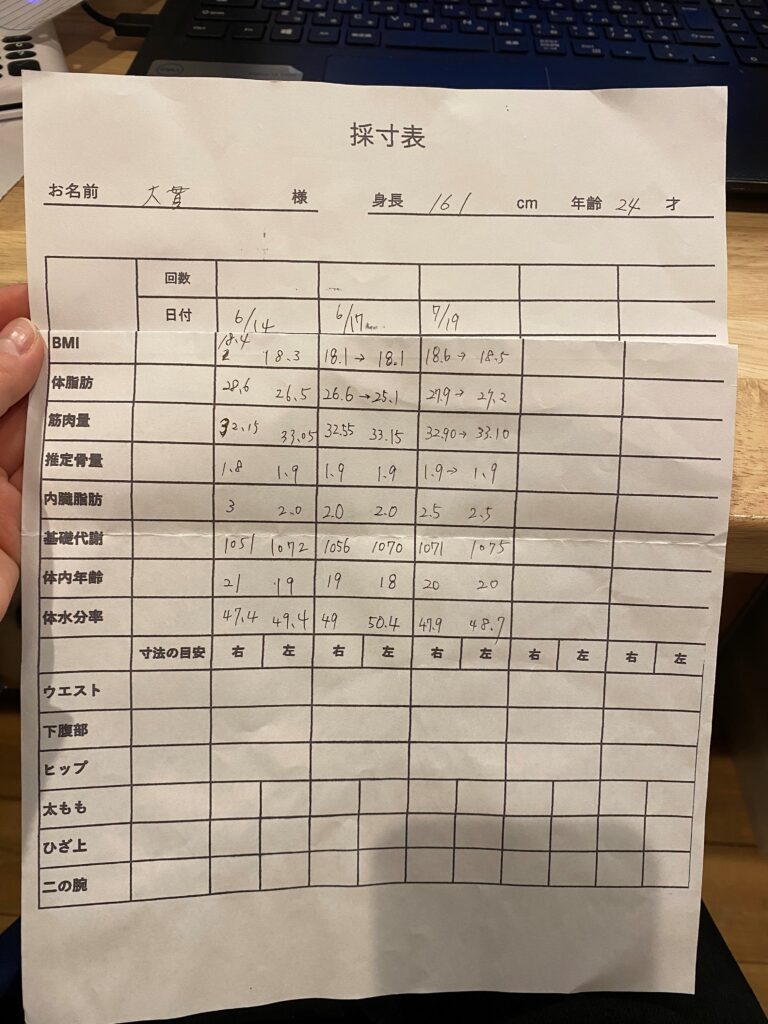 採寸表
お名前 大貫 様 身長 161 cm 年齢 24 才
回数
日付 6/14 6/17 7/19
BMI 18.4 18.3 18.1→ 18.1 18.6→ 18.5
体脂肪 28.6 26.5 26.6→25.1 27.9→ 27.2
筋肉量 32.15 33.05 32.55 33.15 32.90→ 33.10
推定骨量 1.8 1.9 1.9 1.9 1.9→ 1.9
内臓脂肪 3 2.0 2.0 2.0 2.5 2.5
基礎代謝 1051 1072 1056 1070 1071 1075
体内年齢 21 19 19 18 20 20
体水分率 47.4 49.4 49 50.4 47.9 48.7
寸法の目安 右 左 右 左 右 左 右 左 右 左
ウエスト
下腹部
ヒップ
太もも
ひざ上
二の腕